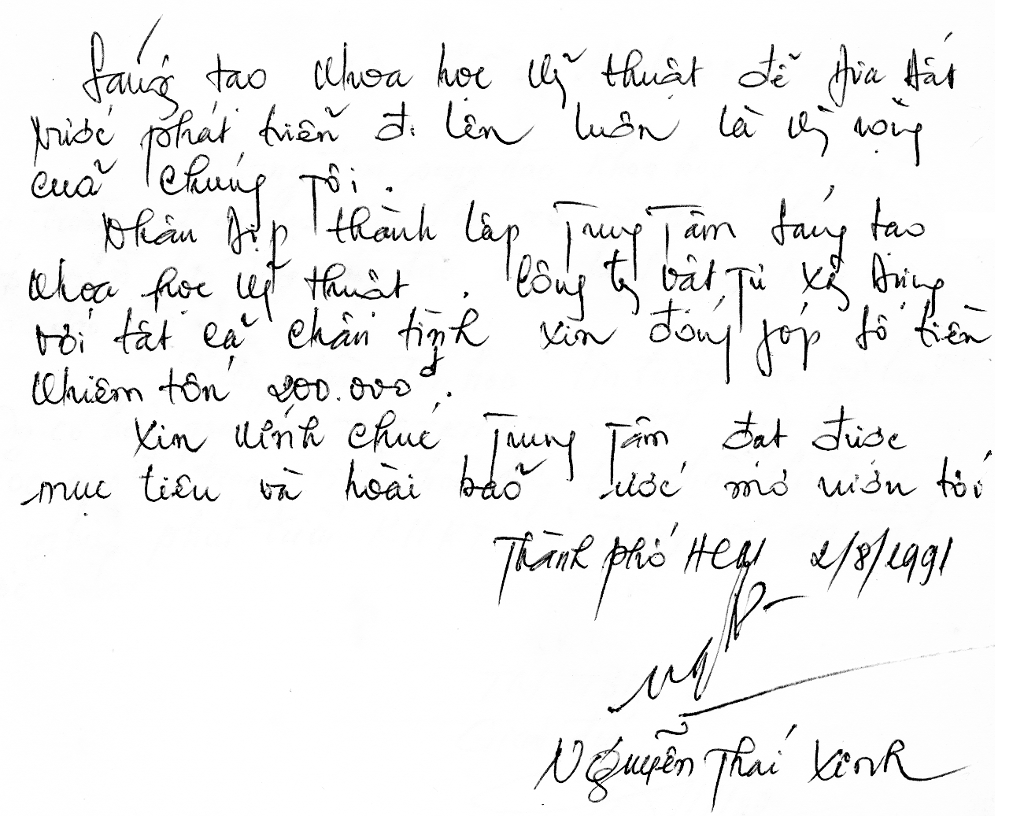 Sáng tạo khoa học kỹ thuật để đưa đất
nước phát triển đi lên luôn là kỳ vọng
của chúng tôi.
Nhân dịp thành lập Trung Tâm sáng tạo
khoa học kỹ thuật. Công ty vật tư xây dựng
với tất cả chân tình xin đóng góp số tiền
khiêm tốn 200.000đ.
Xin kính chúc Trung Tâm đạt được
mục tiêu và hoài bão ước mơ vươn tới
Thành phố HCM 2/8/1991
Nguyễn Thái Xinh